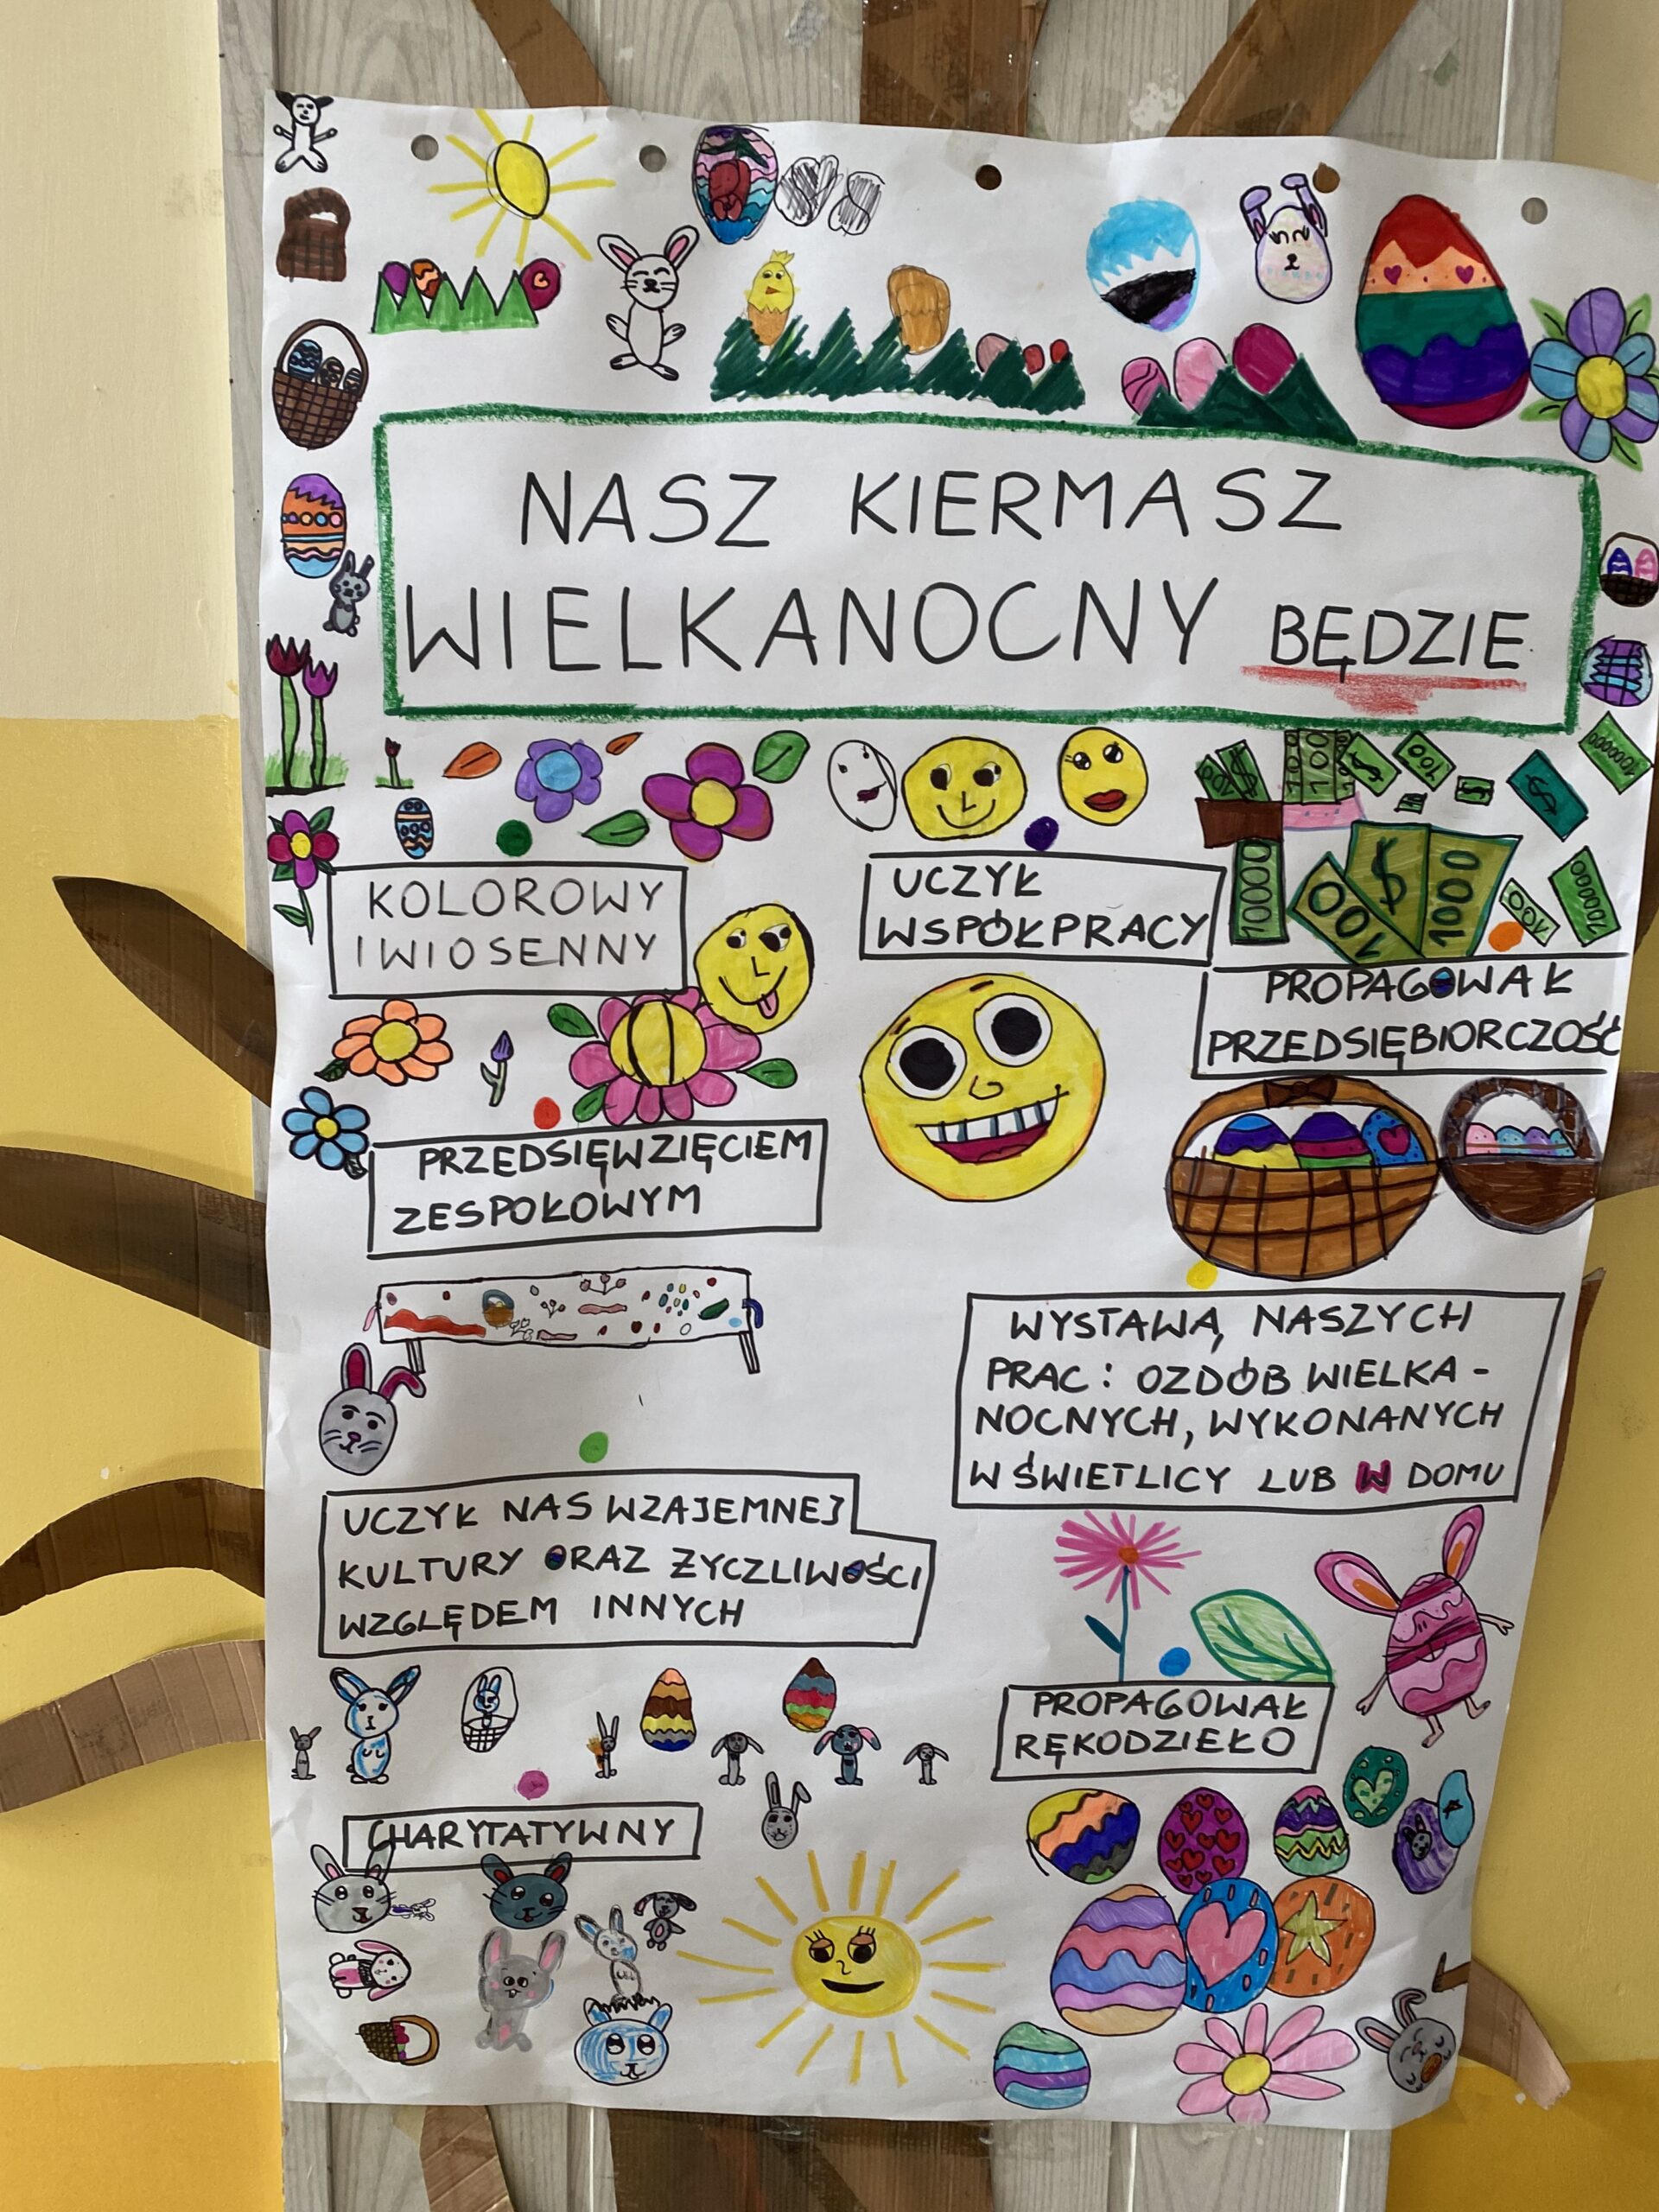 NASZ KIERMASZ
WIELKANOCNY BĘDZIE
KOLOROWY
I WIOSENNY
UCZYŁ
WSPÓŁPRACY
$
100
$
100
$
10000
100
$
1000
100
10000
PROPAGOWAŁ
PRZEDSIĘBIORCZOŚĆ
PRZEDSIĘWZIĘCIEM
ZESPOŁOWYM
WYSTAWĄ NASZYCH
PRAC: OZDÓB WIELKA-
NOCNYCH, WYKONANYCH
W ŚWIETLICY LUB W DOMU
UCZYŁ NAS WZAJEMNEJ
KULTURY ORAZ ŻYCZLIWOŚCI
WZGLĘDEM INNYCH
PROPAGOWAŁ
RĘKODZIEŁO
CHARYTATYWNY